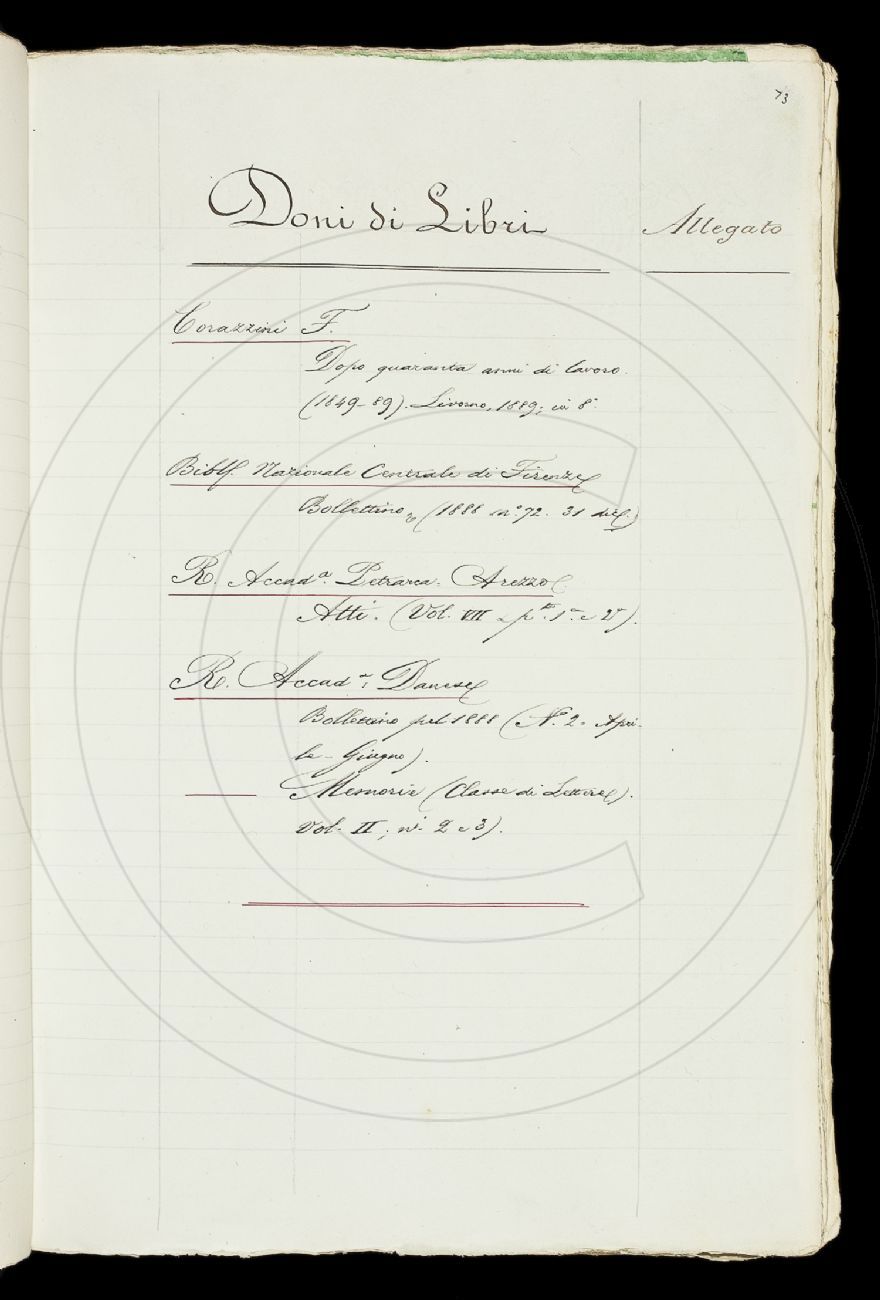 73
Doni di Libri
Allegato
Corazzini F.
Dopo quaranta anni di lavoro.
(1849-89). Livorno, 1889; in 8°.
Nazionale Centrale di Firenze
Bollettino (1888 n° 72. 31 dic.)
R. Accad.ª Petrarca. Arezzo
Atti. (Vol. VII - p.te 1ª e 2ª).
R. Accad.ª Danese
Bollettino pel 1888 (N.° 2. Apri-
le - Giugno).
Memorie (Classe di Lettere).
Vol. II; n.i 2 e 3).